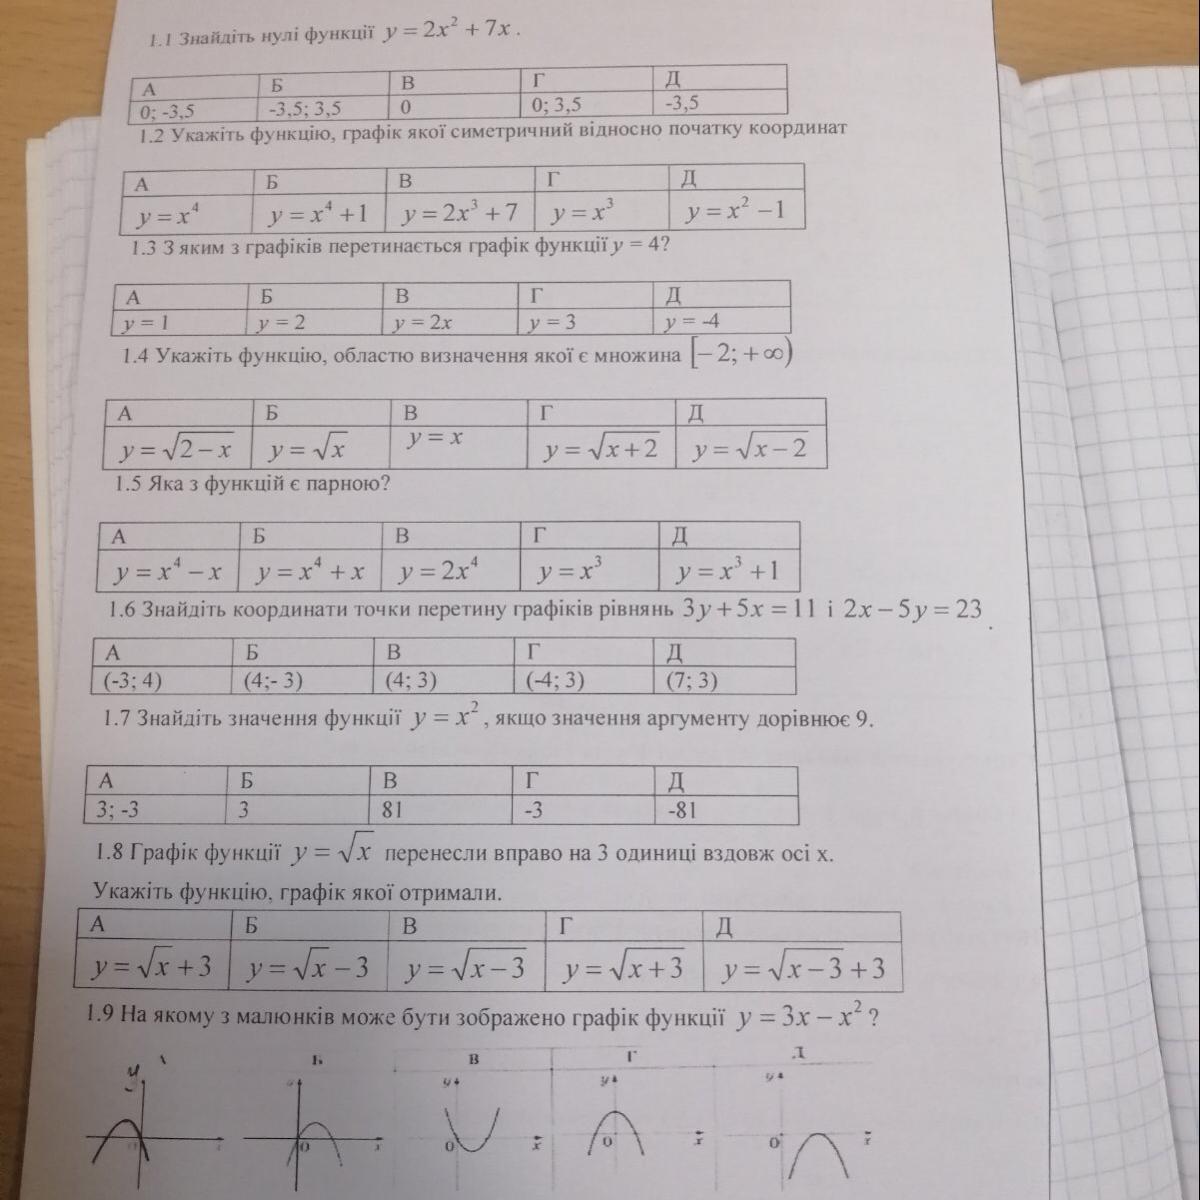 1.1 Знайдіть нулі функції y = 2x² + 7x .
А Б В Г Д
0; -3,5 -3,5; 3,5 0 0; 3,5 -3,5
1.2 Укажіть функцію, графік якої симетричний відносно початку координат
А Б В Г Д
y = x⁴ y = x⁴ +1 y = 2x³ + 7 y = x³ y = x² −1
1.3 З яким з графіків перетинається графік функції y = 4?
А Б В Г Д
y = 1 y = 2 y = 2x y = 3 y = -4
1.4 Укажіть функцію, областю визначення якої є множина [−2; +∞)
А Б В Г Д
y = √(2−x) y = √x y = x y = √(x+2) y = √(x−2)
1.5 Яка з функцій є парною?
А Б В Г Д
y = x⁴ − x y = x⁴ + x y = 2x⁴ y = x³ y = x³ +1
1.6 Знайдіть координати точки перетину графіків рівнянь 3y + 5x = 11 і 2x − 5y = 23 .
А Б В Г Д
(-3; 4) (4;- 3) (4; 3) (-4; 3) (7; 3)
1.7 Знайдіть значення функції y = x² , якщо значення аргументу дорівнює 9.
А Б В Г Д
3; -3 3 81 -3 -81
1.8 Графік функції y = √x перенесли вправо на 3 одиниці вздовж осі x.
Укажіть функцію, графік якої отримали.
А Б В Г Д
y = √x + 3 y = √x − 3 y = √(x−3) y = √(x+3) y = √(x−3) + 3
1.9 На якому з малюнків може бути зображено графік функції y = 3x − x² ?
Б В Г Д
y y y y
0 0 0 0
x x x x